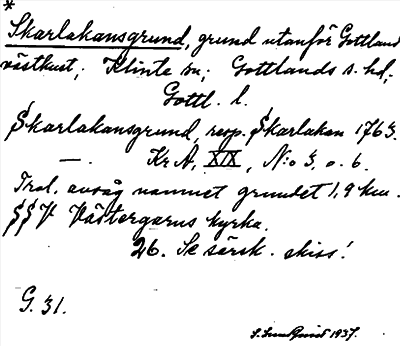 *
Skarlakansgrund, grund utanför Gottland
västkust; Klinte sn; Gottlands s. hd;
Gottl. l.
Skarlakansgrund, resp. Skarlakan 1763.
—. Kr A, XIX, N:o 3, o. 6.
Trol. avsåg namnet grundet 1,9 km.
SSV Västergarns kyrka.
26. Se särsk. skiss!
G. 31.
1937.